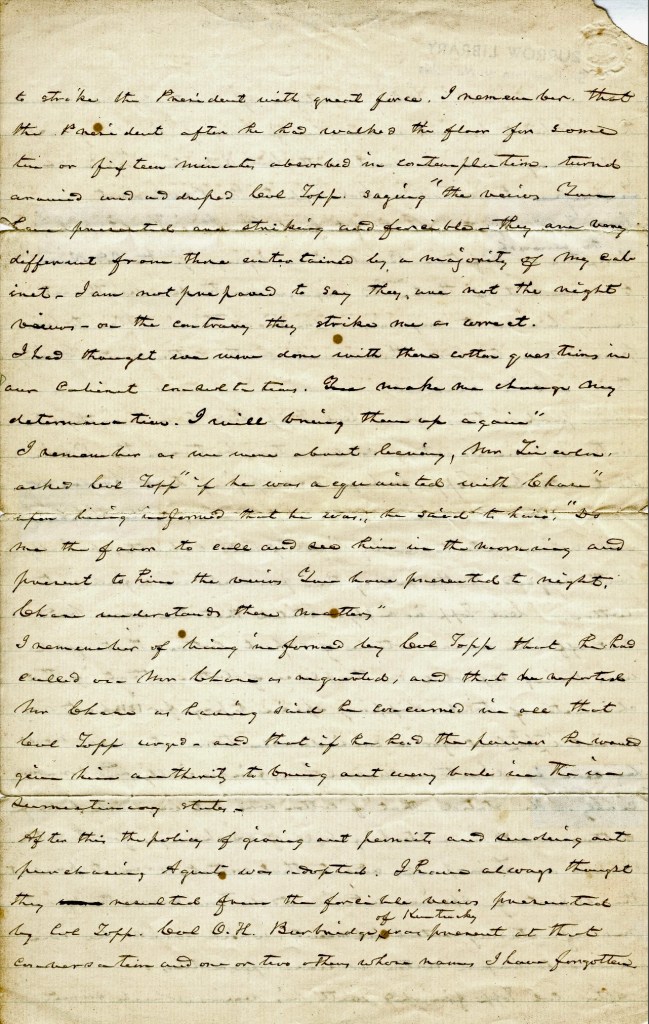 BURROW LIBRARY
to strike the President with great force. I remember. that
the President after he had walked the floor for some
ten or fifteen minutes absorbed in contemplation. turned
around and addressed Col Topp. saying "the views You
have presented are striking and forcible - they are very
different from those entertained by a majority of my cab
inet - I am not prepared to say they, are not the right
views - on the contrary they strike me as correct.
I had thought we were done with these cotton questions in
our Cabinet consultations. You make me change my
determination. I will bring them up again"
I remember as we were about leaving, Mr Lincoln.
asked Col Topp "if he was acquainted with Chase"
upon being informed that he was, he said to him, "Do
me the favor to call and see him in the morning and
present to him the views You have presented to night.
Chase understands these matters"
I remember of being informed by Col Topp that he had
called on Mr Chase as requested, and that he reported
Mr Chase as having said he concurred in all that
Col Topp urged - and that if he had the power he would
give him authority to bring out every bale in the in
surrectionary states -
After this the policy of giving out permits and sending out
purchasing Agents was adopted. I have always thought
they resulted from the forcible views presented
by Col Topp. Col O. H. Burbridge, of Kentucky was present at that
conversation and one or two others whose names I have forgotten